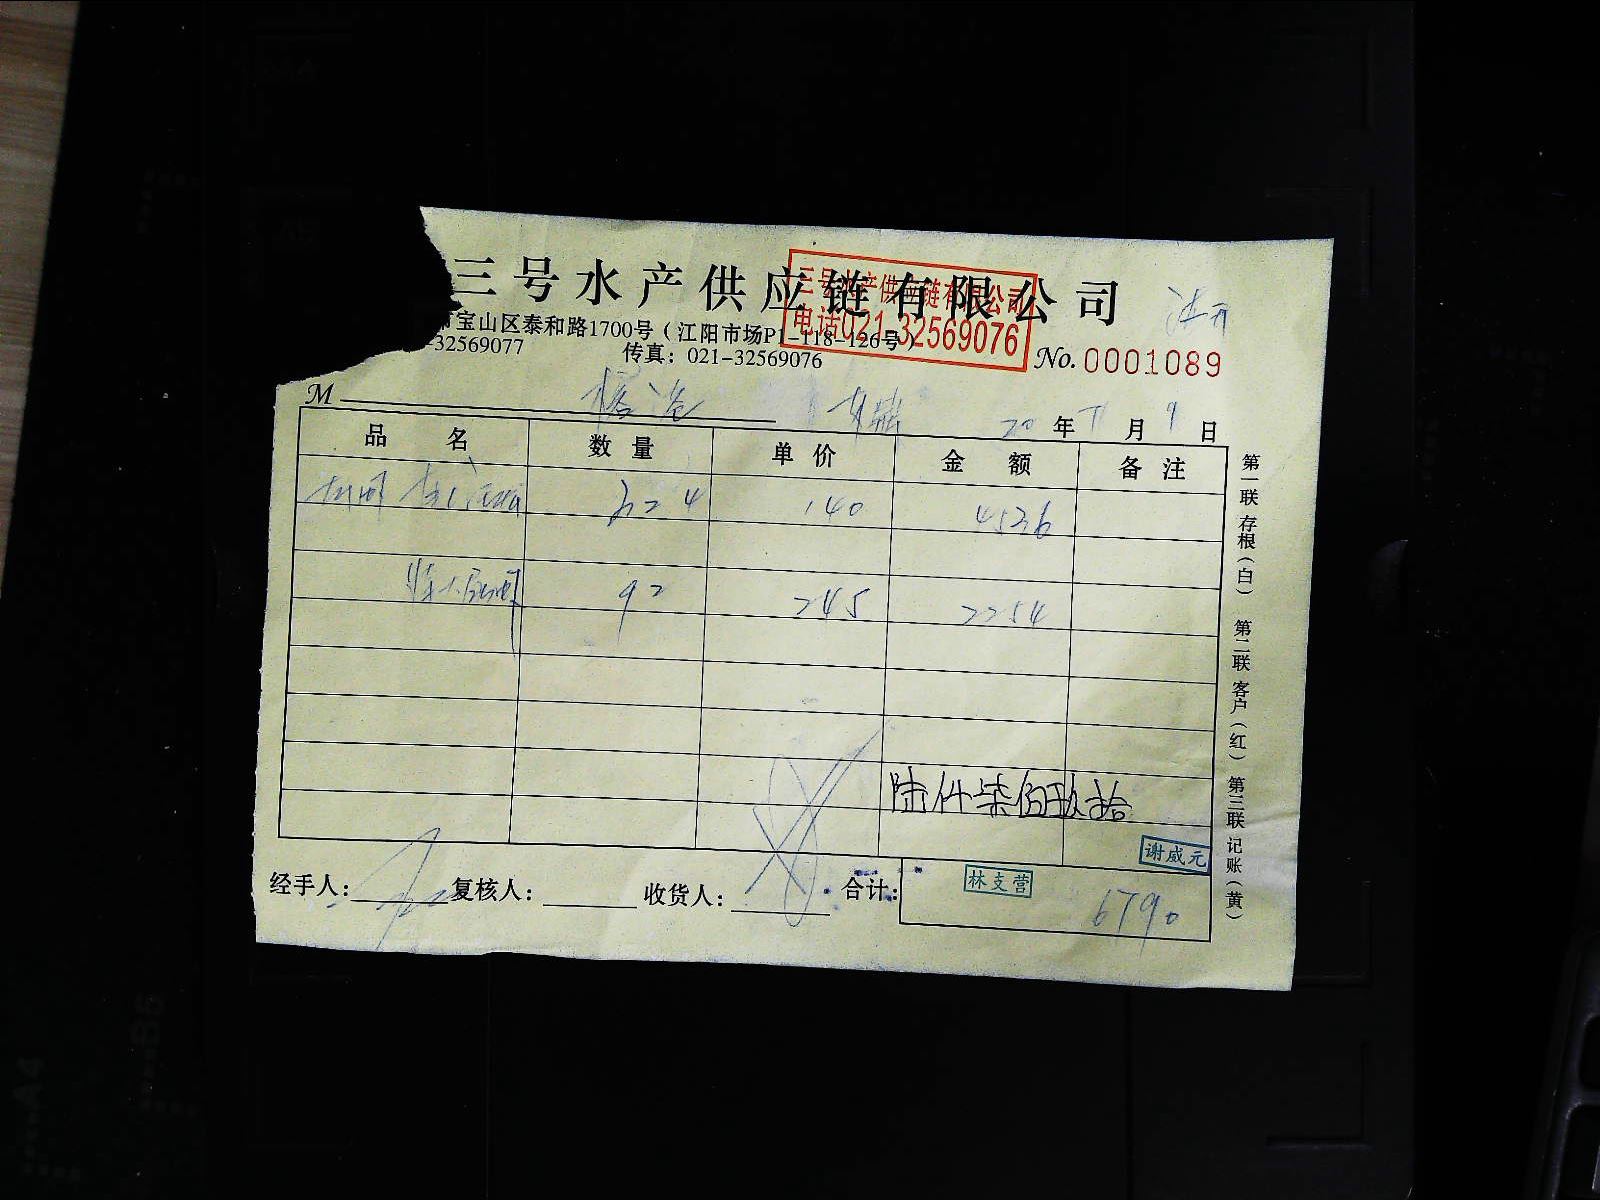 三号水产供应链有限公司
三号水产供应链有限公司
电话021-32569076
市宝山区泰和路1700号（江阳市场P1-118-126号）
-32569077 传真：021-32569076
No.0001089
M
20 年 11 月 9 日
品 名 数 量 单 价 金 额 备 注
324 140 4536
92 245 2254
陆仟柒佰玖拾
谢威元
经手人： 复核人： 收货人： 合计： 林支营 6790
第一联 存根（白） 第二联 客户（红） 第三联 记账（黄）